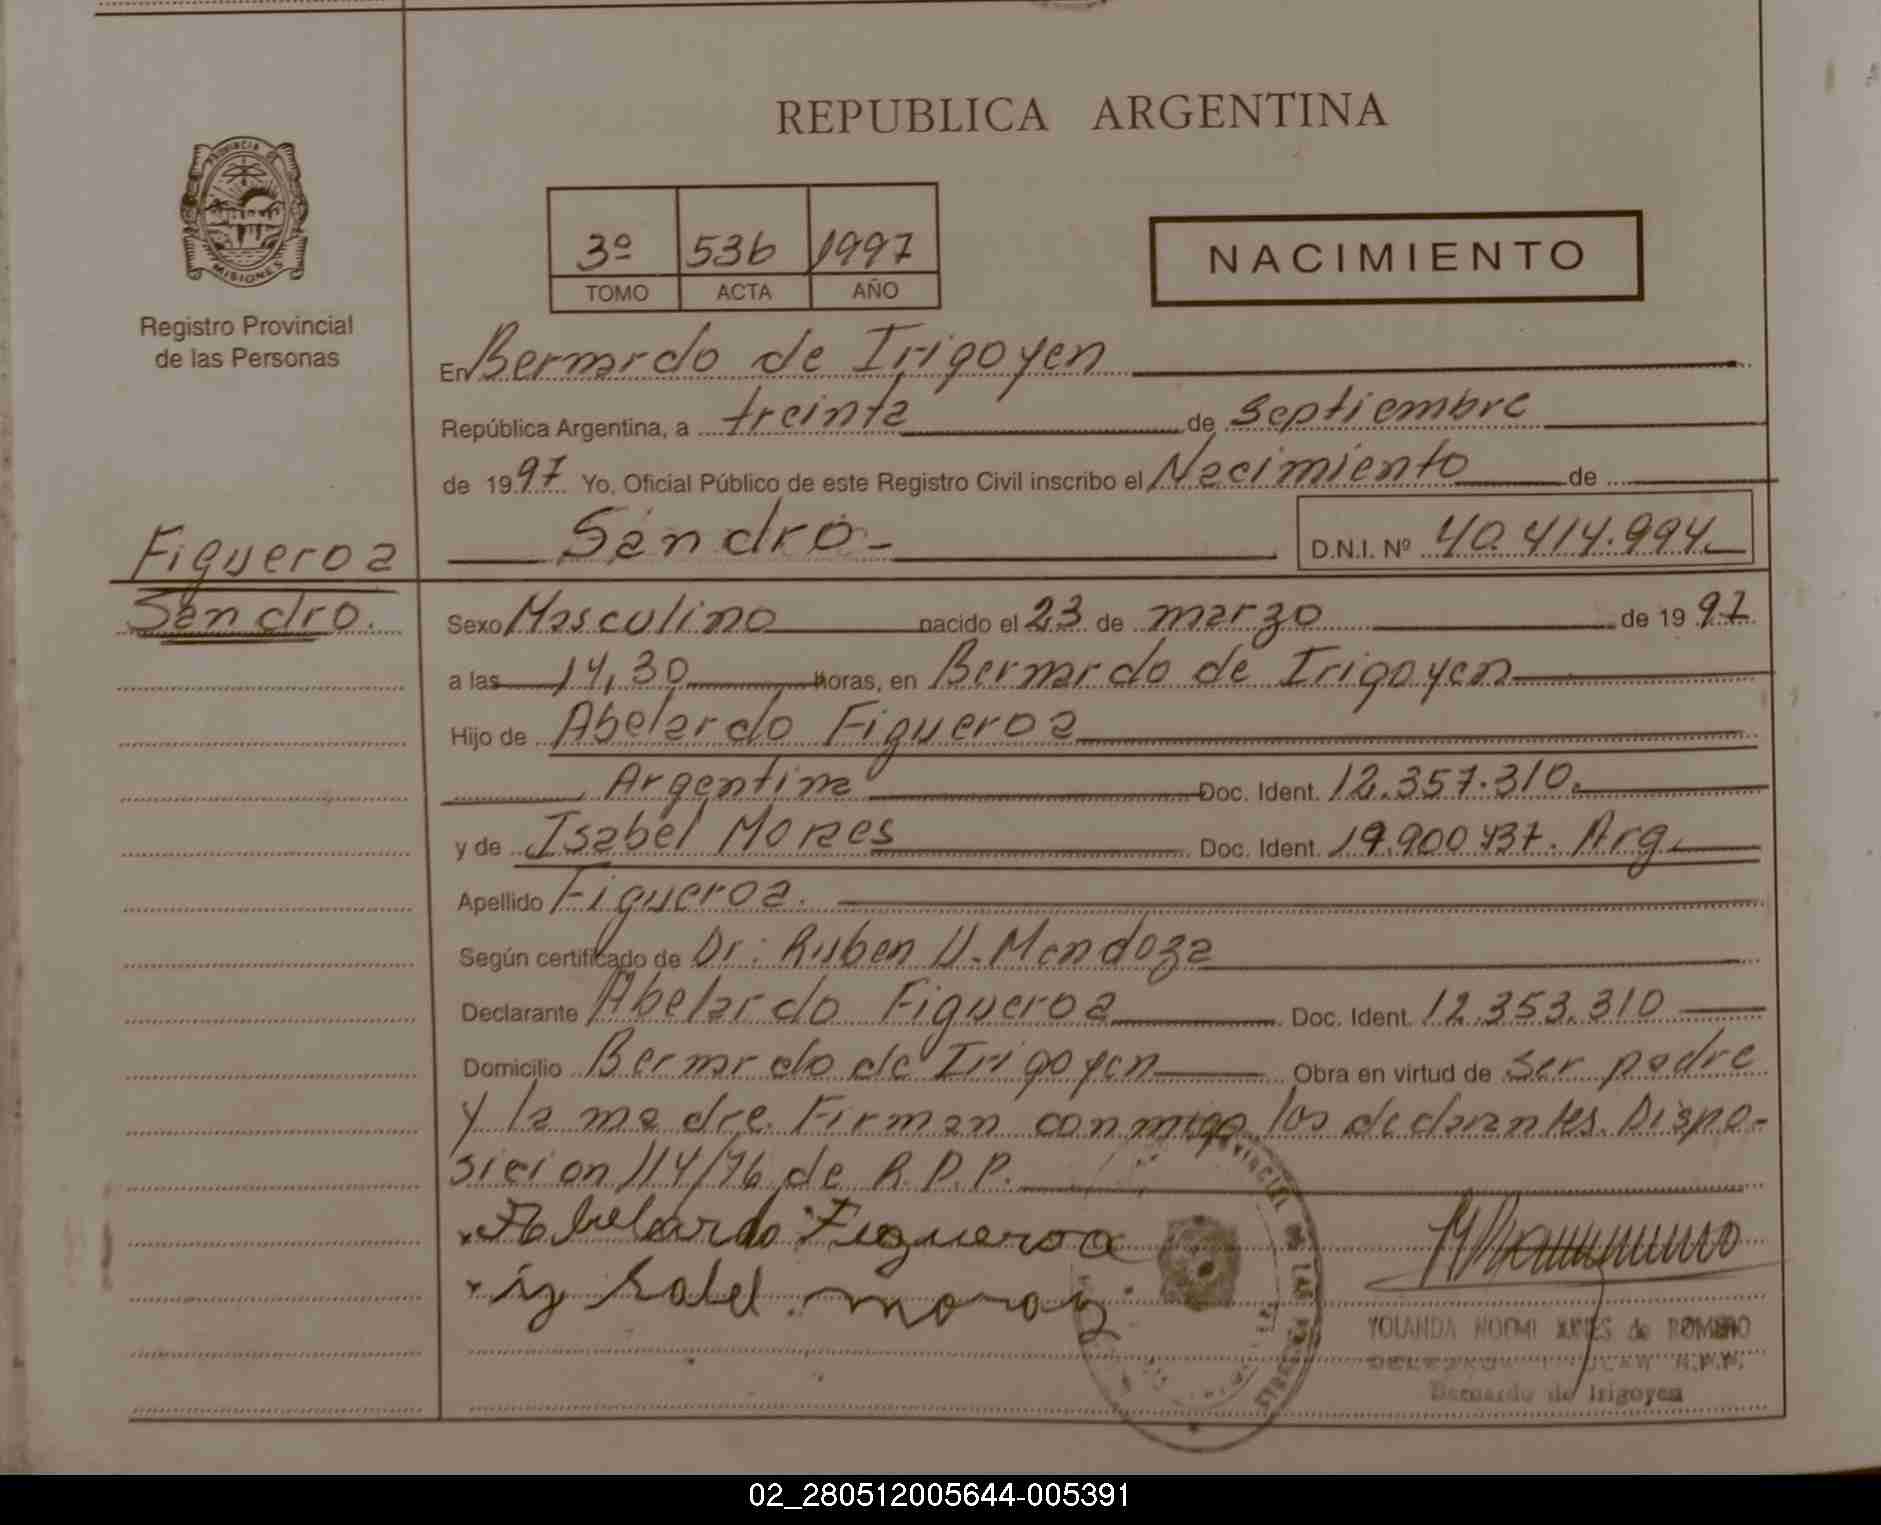 REPUBLICA ARGENTINA
PROVINCIA DE
MISIONES
Registro Provincial
de las Personas
3º 536 1997
TOMO ACTA AÑO
NACIMIENTO
En Bernardo de Irigoyen
República Argentina, a treinta de Septiembre
de 1997 Yo, Oficial Público de este Registro Civil inscribo el Nacimiento de
Sandro
D.N.I. Nº 40.414.994
Figueroa
Sandro.
Sexo Masculino nacido el 23 de marzo de 1997
a las 14,30 horas, en Bernardo de Irigoyen
Hijo de Abelardo Figueroa
Argentina Doc. Ident. 12.357.310.
y de Isabel Moraes Doc. Ident. 19.900.437. Arg.
Apellido Figueroa.
Según certificado de Dr. Ruben U. Mendoza
Declarante Abelardo Figueroa Doc. Ident. 12.353.310
Domicilio Bernardo de Irigoyen Obra en virtud de ser padre
y la madre. Firman conmigo los declarantes. Dispo-
sicion 114/76 de R.P.P.
Abelardo Figueroa
YOLANDA NOEMI de ROMERO
Bernardo de Irigoyen
02_280512005644-005391